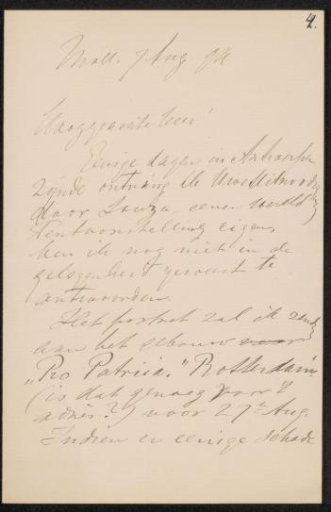 4.
Moll. 7 Aug. 94
Hooggeachte Heer!
Eenige dagen in Antwerpen
zijnde ontving ik Uw
door eener wereld
tentoonstelling eigen,
ben ik nog niet in de
gelegenheid geweest te
antwoorden.
Het portret zal ik
aan het gebouw voor
"Pro Patria." Rotterdam
(is dat genoeg voor 't
adres?) voor 27n Aug.
Indien er eenige schade